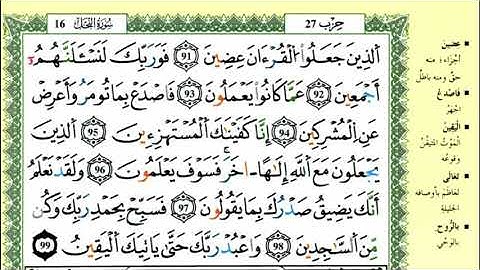 سُورَةُ النَّحْلِ 16
حِزْب 27
الَّذِينَ جَعَلُوا الْقُرْءَانَ عِضِينَ 91 فَوَرَبِّكَ لَنَسْـَٔلَنَّهُمُۥٓ
أَجْمَعِينَ 92 عَمَّا كَانُوا يَعْمَلُونَ 93 فَاصْدَعْ بِمَا تُومَرُ وَأَعْرِضْ
عَنِ الْمُشْرِكِينَ 94 إِنَّا كَفَيْنَٰكَ الْمُسْتَهْزِءِينَ 95 الَّذِينَ
يَجْعَلُونَ مَعَ اللَّهِ إِلَٰهًا ـاخَرَ فَسَوْفَ يَعْلَمُونَ 96 وَلَقَدْ نَعْلَمُ
أَنَّكَ يَضِيقُ صَدْرُكَ بِمَا يَقُولُونَ 97 فَسَبِّحْ بِحَمْدِ رَبِّكَ وَكُن
مِّنَ السَّٰجِدِينَ 98 وَاعْبُدْ رَبَّكَ حَتَّىٰ يَاتِيَكَ الْيَقِينُ 99
عِضِينَ
أَجْزَاءً: منه
حقٌّ ومنه باطلٌ
فَاصْدَعْ
اجْهَرْ
الْيَقِينُ
الْمَوْتُ الْمُتَيَقَّنُ
وُقُوعُهُ
تَعَالَى
تَعَاظَمَ بِأَوْصَافِهِ
الْجَلِيلَةِ
بِالرُّوحِ
بِالْوَحْيِ